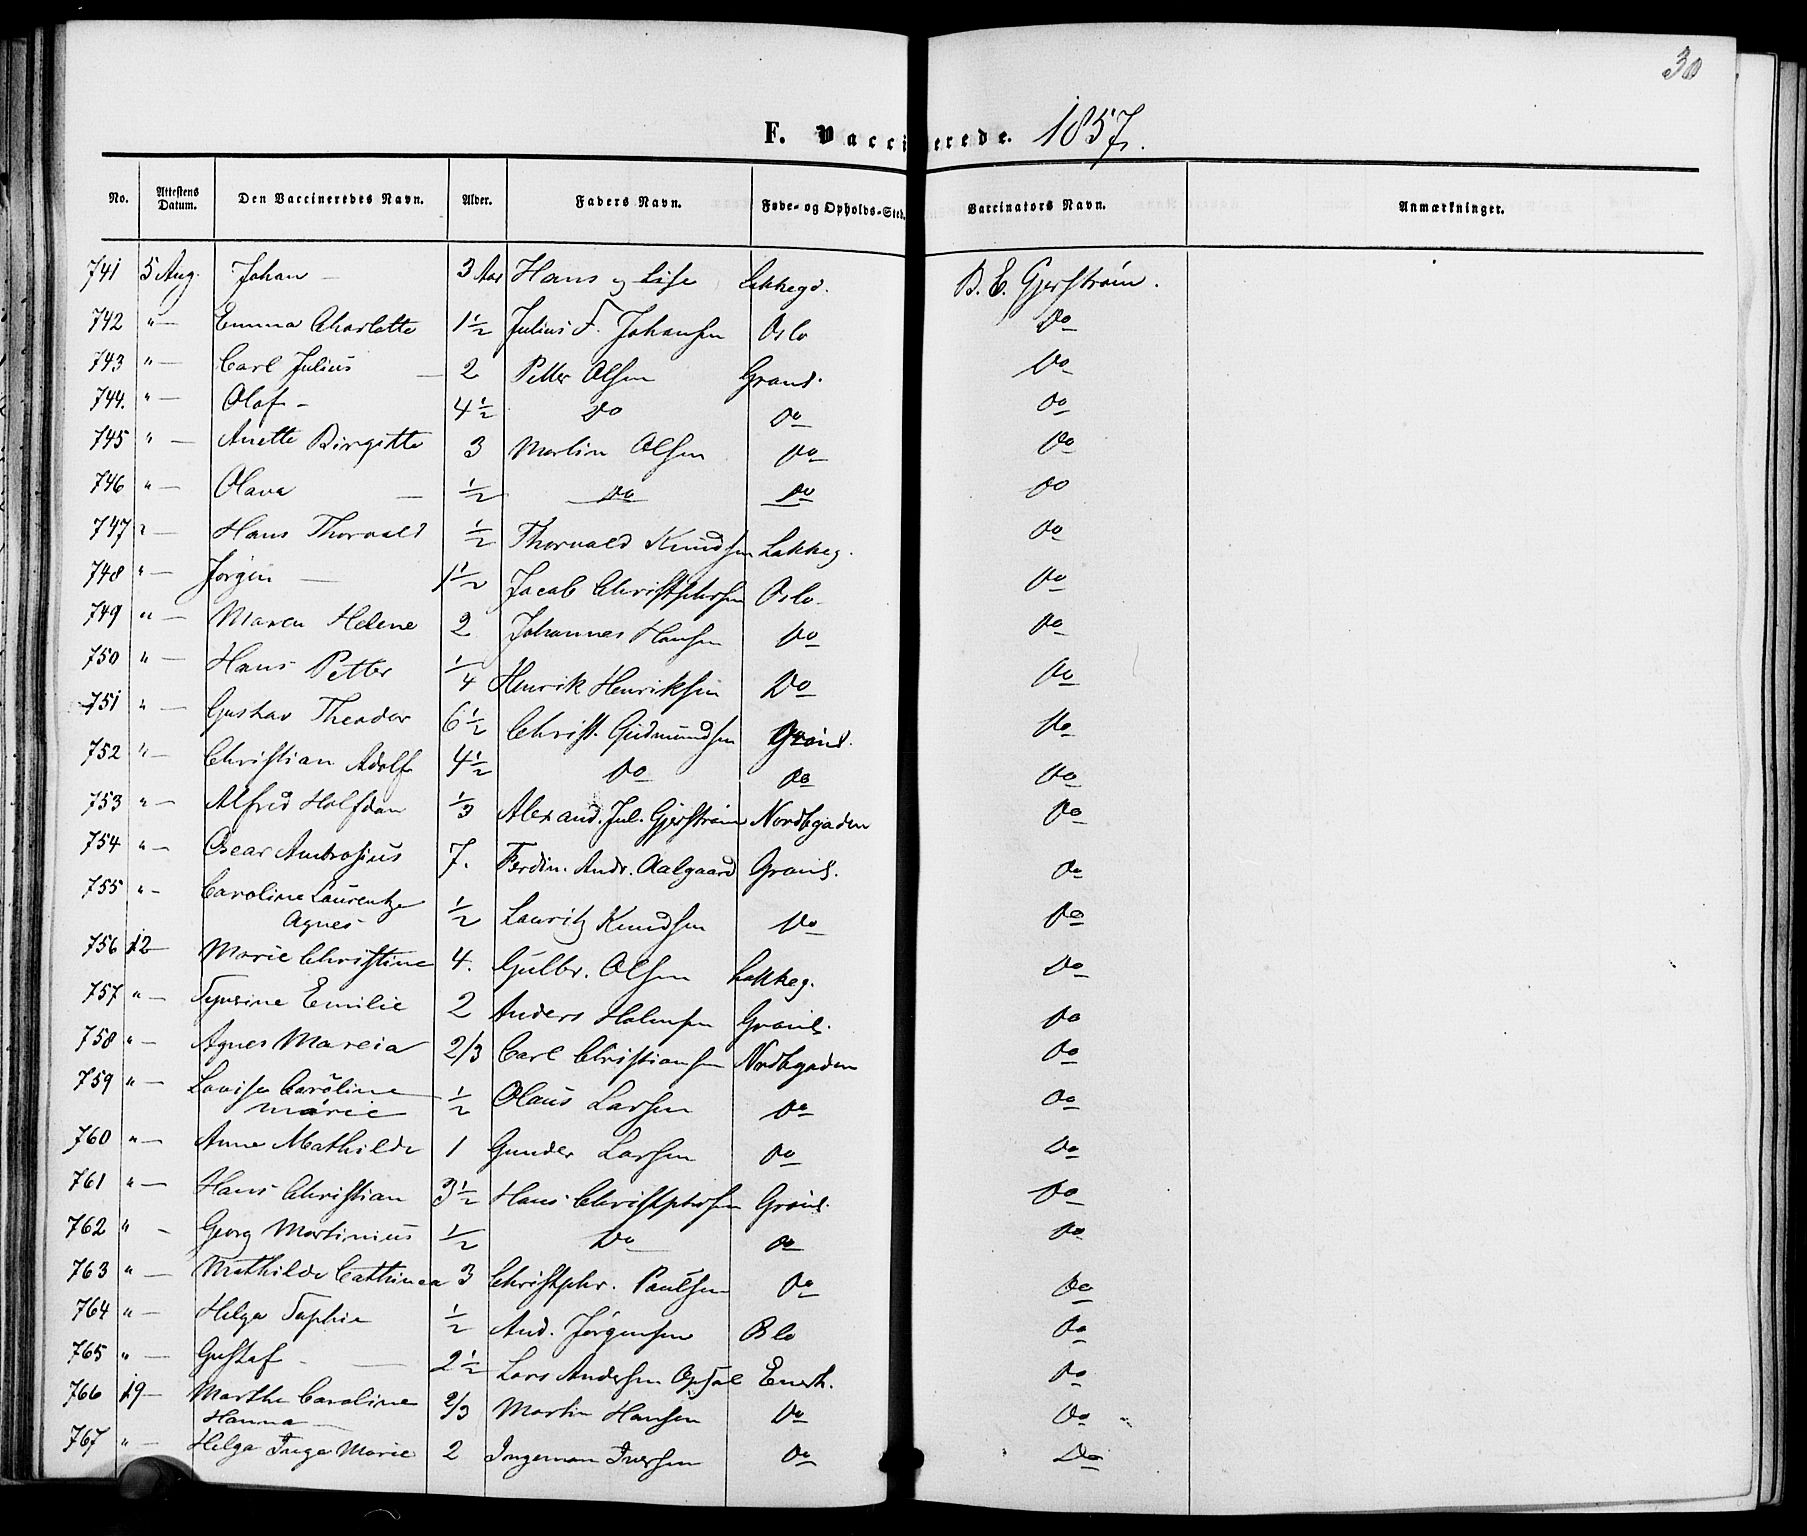 30
F. Vaccinerede. 1857.
No. Attestens Datum. Den Vaccineredes Navn. Alder. Faders Navn. Føde- og Opholds-Sted. Vaccinators Navn. Anmærkninger.
741 5 Aug. Johan — 3 Aar Hans og Lise Lakkegd. B. E. Gjerstrøm.
742 " — Emma Charlotte 1 1/2 Julius F. Johansen Oslo Do
743 " — Carl Julius — 2 Petter Olsen Grønl. Do
744. " — Olaf — 4 1/2 Do Do Do
745 " — Anette Birgitte 3 Martin Olsen Do Do
746 " — Olava — 1/2 Do Do Do
747 " — Hans Thorvald 1/2 Thorvald Knudsen Lakkeg. Do
748 " — Jørgen — 1 1/2 Jacob Christophersen Oslo. Do
749 " — Maren Helene 2 Johannes Hansen Do Do
750 " — Hans Petter 1/4 Henrik Henriksen Do Do
751 " — Gustav Theodor 6 1/2 Christ. Gudmundsen Grønl. Do
752 " — Christian Adolf 4 1/2 Do Do Do
753 " — Alfred Halfdan 1/3 Alexand. Jul. Gjerstrøm Nordbygaden Do
754 " — Oscar Ambrosius 7. Ferdin. Andr. Aalgaard Grønl. Do
755 " — Caroline Laurentze
Agnes 1/2 Lauritz Knudsen Do Do
756 12 — Marie Christine 4. Gulbr. Olsen Lakkeg. Do
757 " — Emilie 2 Anders Holmsen Grønl. Do
758 " — Agnes Marcia 2/3 Carl Christiansen Nordbygaden Do
759 " — Lovise Caroline
Marie 1/2 Olaus Larsen Do Do
760 " — Anne Mathilde 1 Gunder Larsen Do Do
761 " — Hans Christian 3 1/2 Hans Christophersen Grønl. Do
762 " — Georg Martinius 1/2 Do Do Do
763 " — Mathilde Cathinca 3 Christphr. Paulsen Do Do
764 " — Helga Sophie 1/2 And. Jørgensen Do
765 " — Gustaf — 2 1/2 Lars Andersen Opsal Enerh. Do
766 19 — Marthe Caroline
Hanna — 2/3 Martin Hansen Do Do
767 " — Helga Inga Marie 2 Ingeman Iversen Do Do